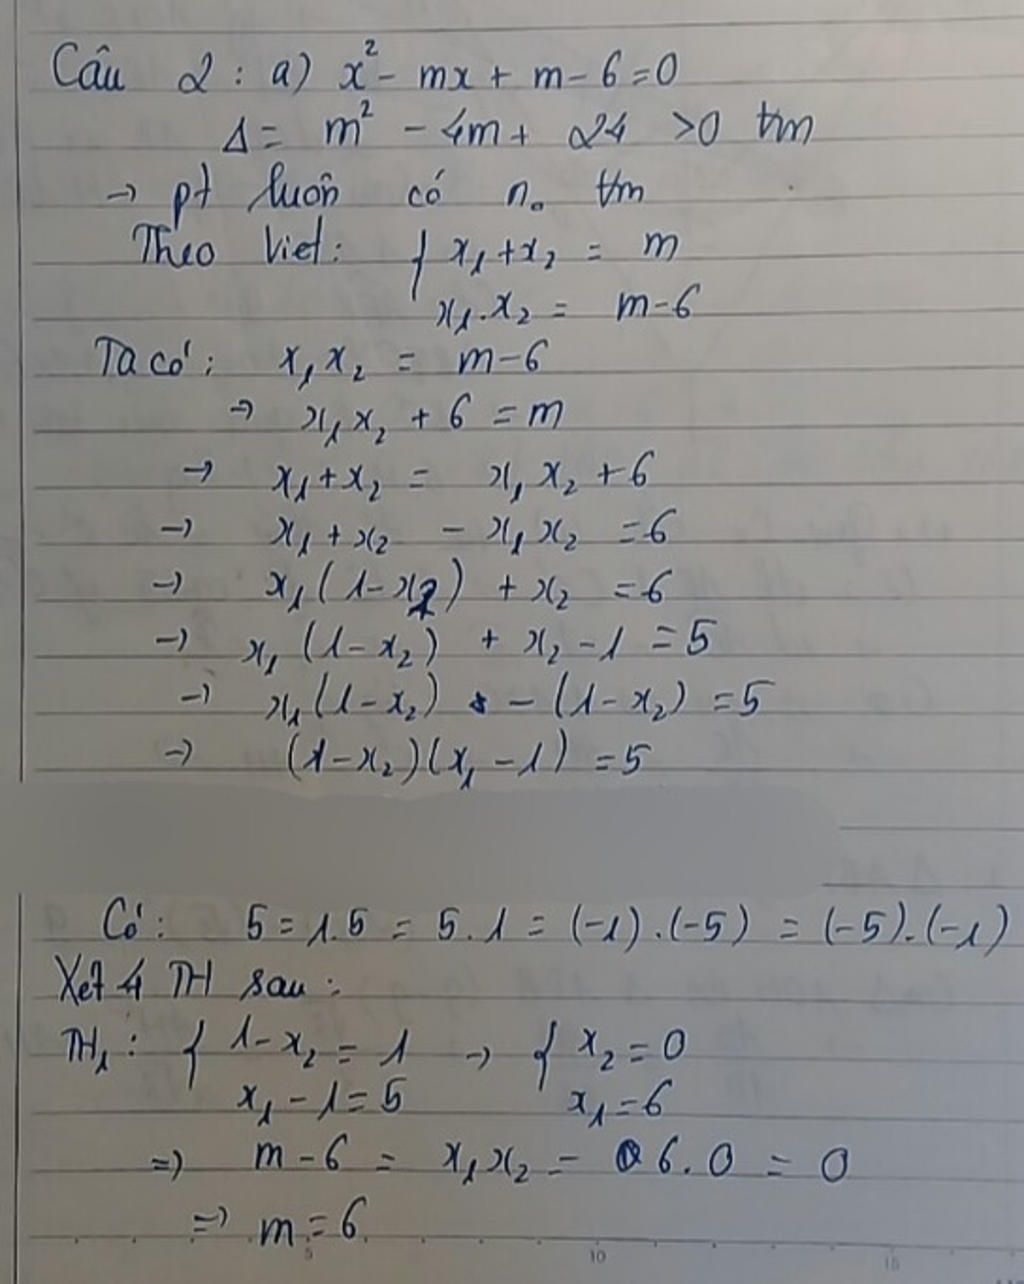 Câu 2 : a) x² - mx + m - 6 = 0
Δ = m² - 4m + 24 > 0 ∀m
→ pt luôn có n₀ ∀m
Theo Viet: { x₁ + x₂ = m
x₁.x₂ = m-6
Ta có: x₁x₂ = m-6
→ x₁x₂ + 6 = m
→ x₁ + x₂ = x₁x₂ + 6
→ x₁ + x₂ - x₁x₂ = 6
→ x₁(1-x₂) + x₂ = 6
→ x₁(1-x₂) + x₂ - 1 = 5
→ x₁(1-x₂) - (1-x₂) = 5
→ (1-x₂)(x₁-1) = 5
Có: 5 = 1.5 = 5.1 = (-1).(-5) = (-5).(-1)
Xét 4 TH sau:
TH₁: { 1-x₂ = 1 → { x₂ = 0
x₁ - 1 = 5 x₁ = 6
⇒ m - 6 = x₁x₂ = 6.0 = 0
⇒ m = 6
5 10 15